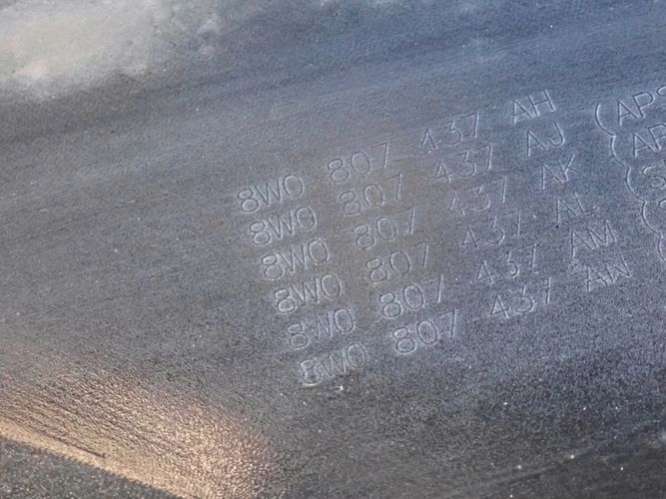 8W0 807 437 AH (APS
8W0 807 437 AJ
8W0 807 437 AK
8W0 807 437 AL
8W0 807 437 AM
8W0 807 437 AW